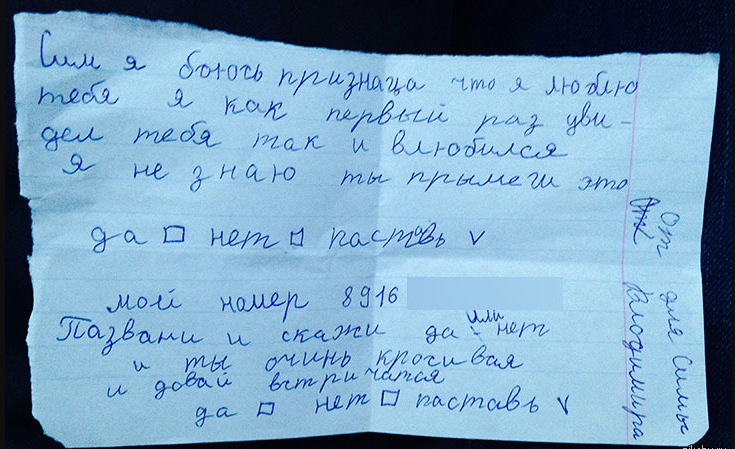 Сим я боюсь признаца что я люблю
тебя я как первый раз уви-
дел тебя так и влюбился
я не знаю ты прымеш это
да □ нет □ паставь v
мой номер 8916
Пазвани и скажи да или нет
и ты очинь кросивая
и довай встричатся
да □ нет □ паставь v
От для Симы
Клодимира